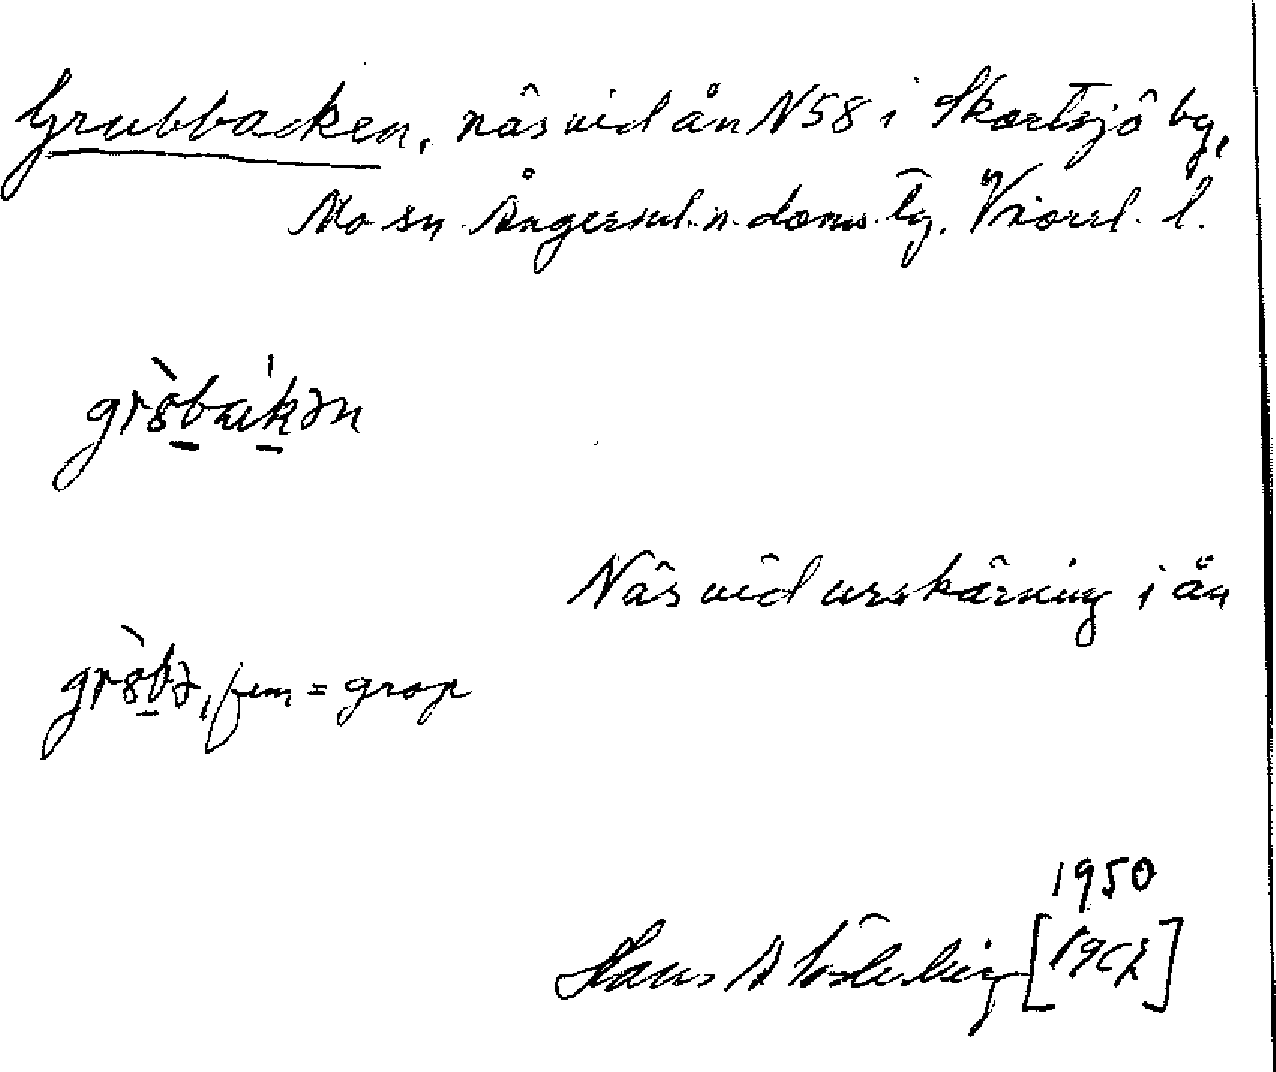 Grubbacken, näs vid ån N58 i Skortsjö by,
Mo sn Ångerml. n. doms. tg. Vnorrl. l.
grȍbakən
Näs vid urskärning i ån
grȍbə, fem = grop
1950
Hans A Österberg